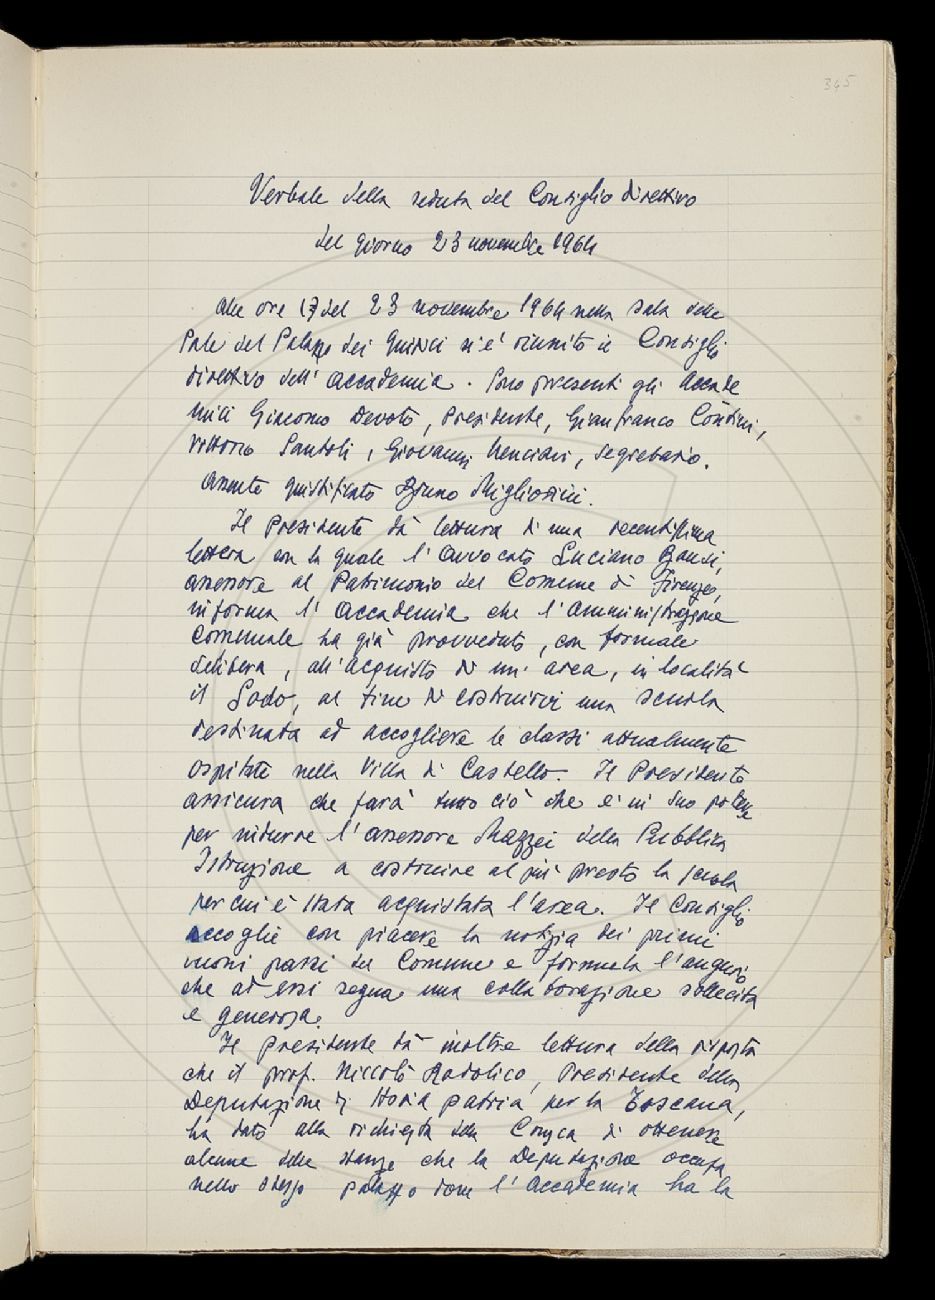 345
Verbale della seduta del Consiglio direttivo
del giorno 23 novembre 1964
Alle ore 17 del 23 novembre 1964 nella Sala delle
Pale del Palazzo dei Giudici si è riunito il Consiglio
direttivo dell'Accademia. Sono presenti gli Accade
mici Giacomo Devoto, Presidente, Gianfranco Contini,
Vittorio Santoli, Giovanni Nencioni, segretario.
Assente giustificato Bruno Migliorini.
Il Presidente dà lettura di una recentissima
lettera con la quale l'Avvocato Luciano Bausi,
assessore al Patrimonio del Comune di Firenze,
informa l'Accademia che l'Amministrazione
Comunale ha già provveduto, con formale
delibera, all'acquisto di un'area, in località
il Sodo, al fine di costruirvi una scuola
destinata ad accogliere le classi attualmente
ospitate nella Villa di Castello. Il Presidente
assicura che farà tutto ciò che è in suo potere
per indurre l'assessore Mazzei della Pubblica
Istruzione a costruire al più presto la scuola
per cui è stata acquistata l'area. Il Consiglio
accoglie con piacere la notizia dei primi
buoni passi del Comune e formula l'augurio
che ad essi segua una collaborazione sollecita
e generosa.
Il Presidente dà inoltre lettura della risposta
che il prof. Niccolò Rodolico, Presidente della
Deputazione di Storia patria per la Toscana,
ha dato alla richiesta della Crusca di ottenere
alcune delle stanze che la Deputazione occupa
nello stesso palazzo dove l'Accademia ha la